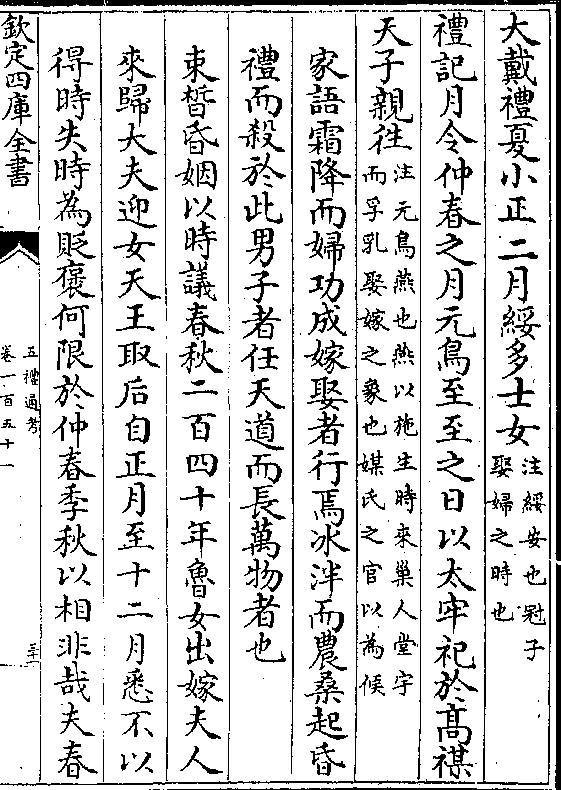 大戴禮夏小正二月綏多士女注綏安也冠子
娶婦之時也
禮記月令仲春之月元鳥至至之日以太牢祀於高禖
天子親往注元鳥燕也燕以施生時來巢人堂宇
而孚乳娶嫁之象也媒氏之官以為候
家語霜降而婦功成嫁娶者行焉冰泮而農桑起昏
禮而殺於此男子者任天道而長萬物者也
束晳昏姻以時議春秋二百四十年魯女出嫁夫人
來歸大夫迎女天王取后自正月至十二月悉不以
得時失時為貶褒何限於仲春季秋以相非哉夫春
欽定四庫全書
五禮通考
卷一百五十一
三十